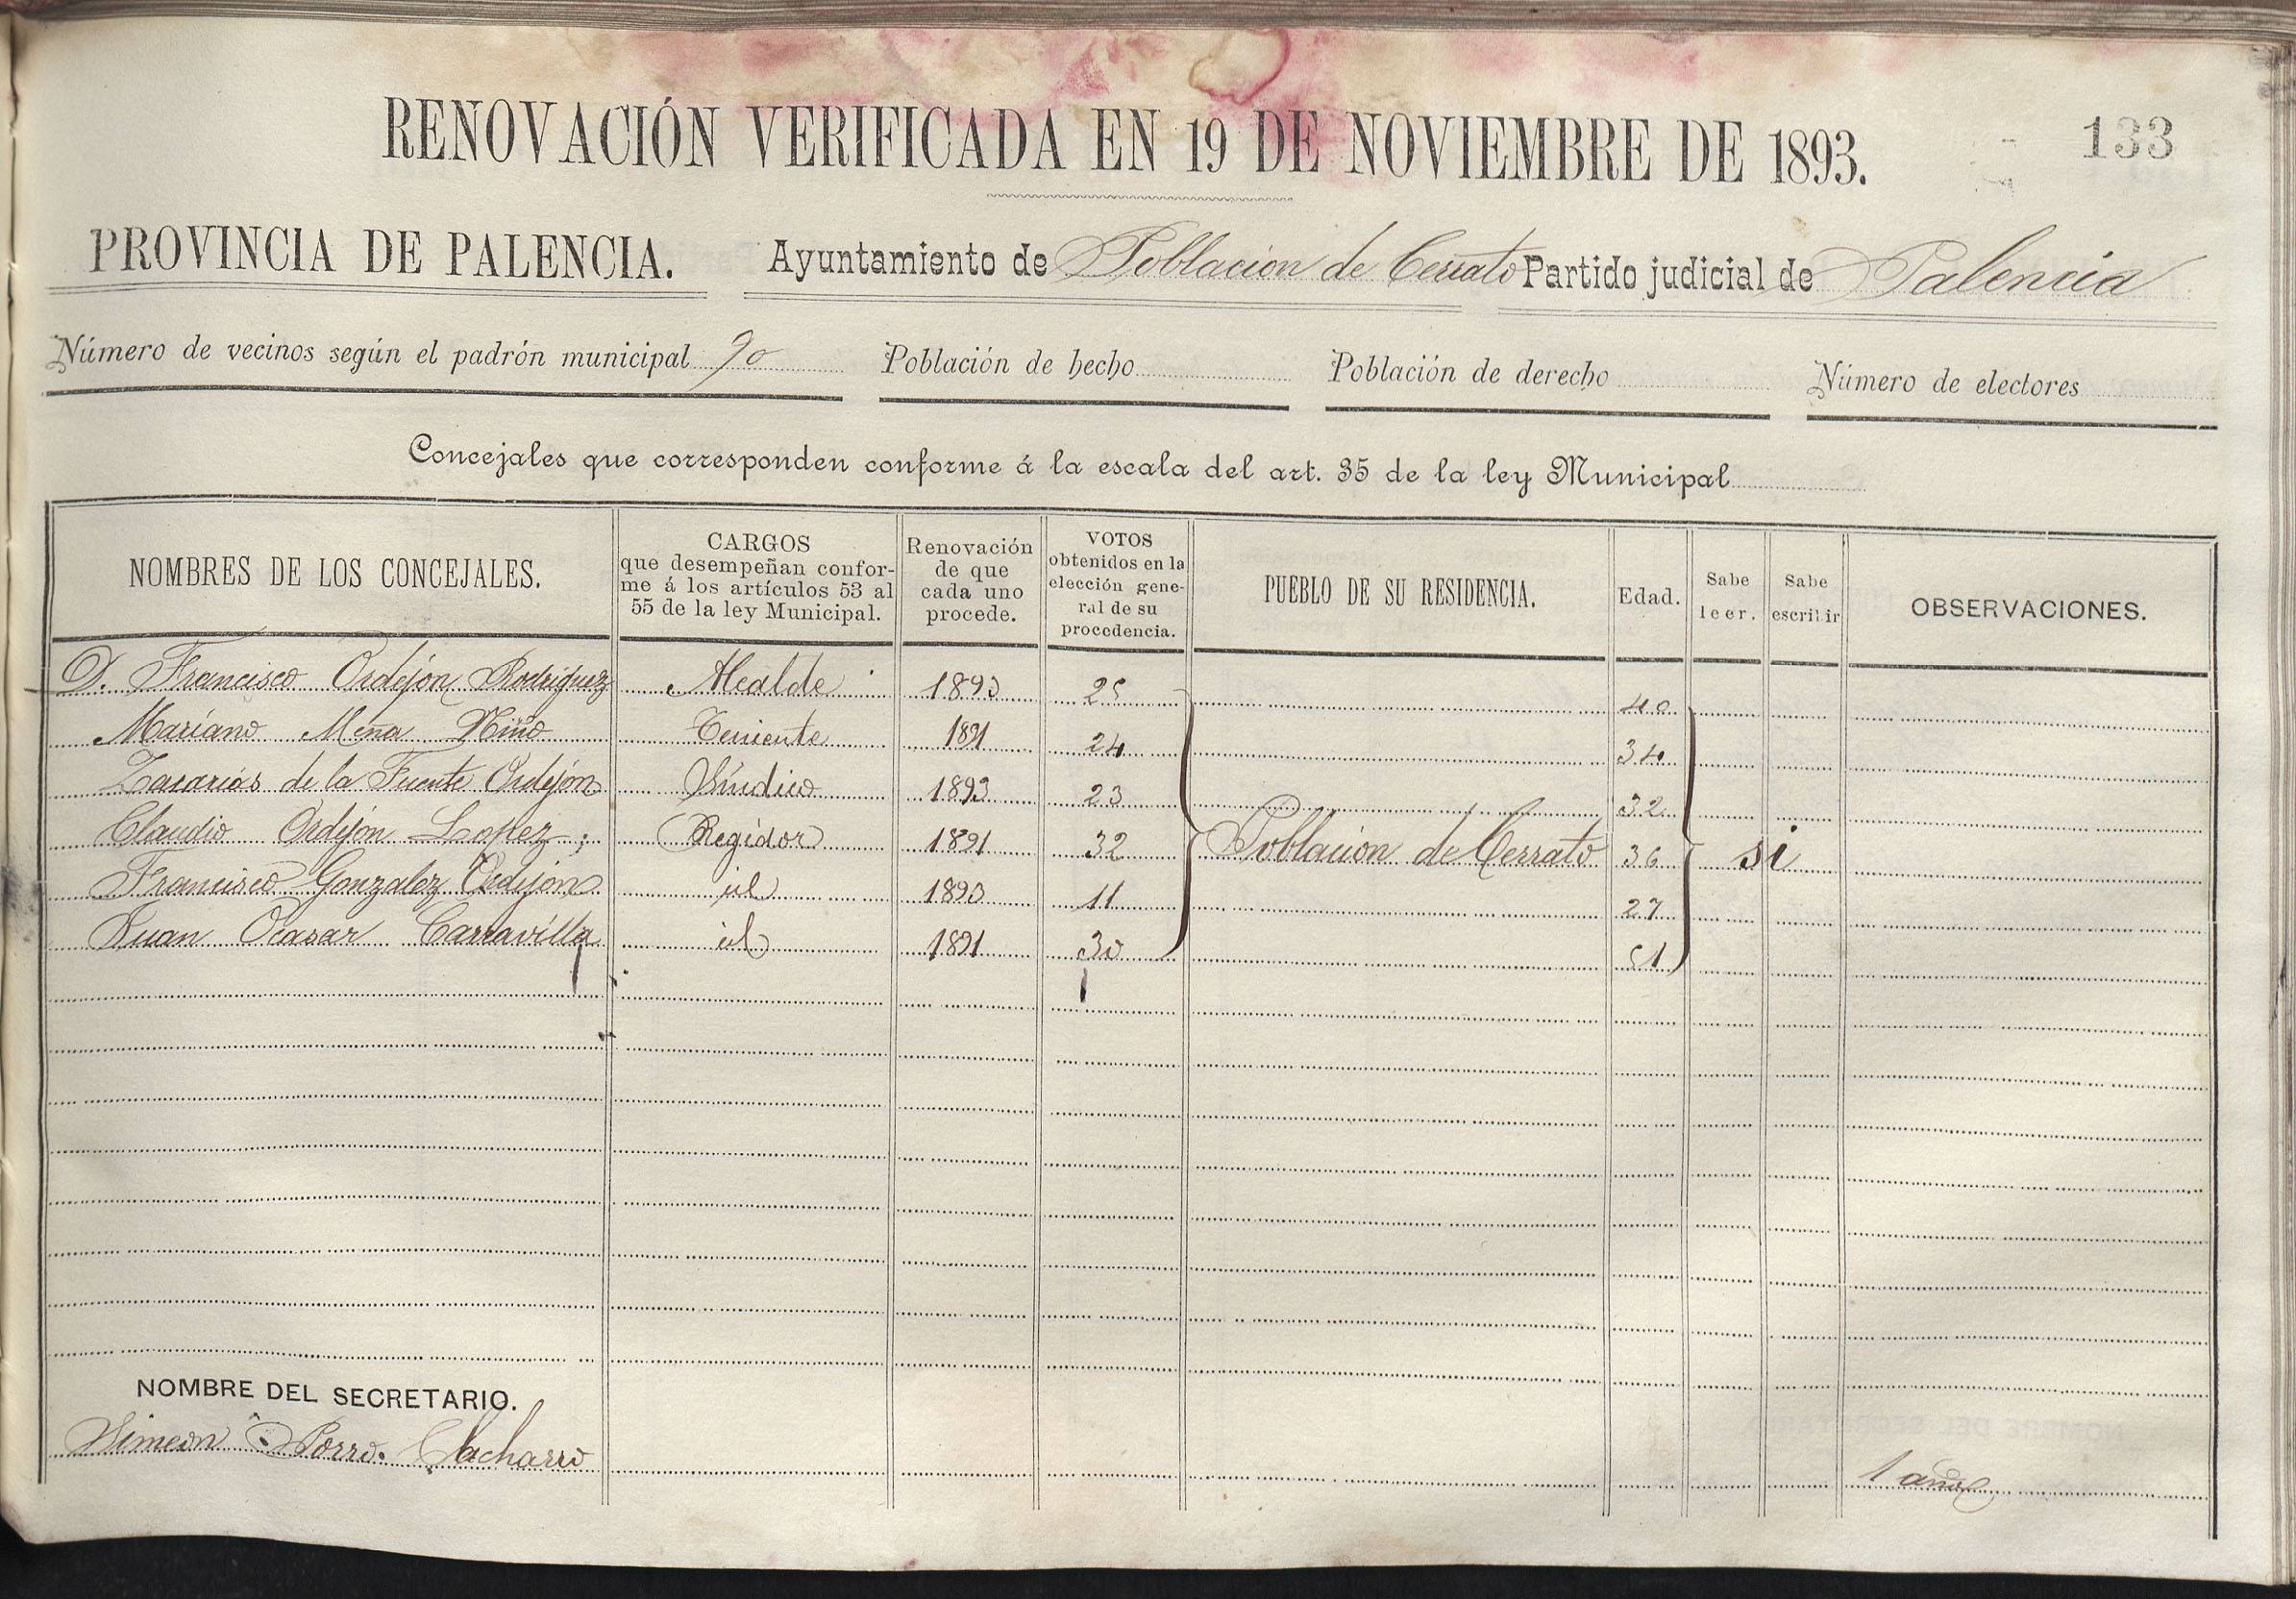 133
RENOVACIÓN VERIFICADA EN 19 DE NOVIEMBRE DE 1893.
PROVINCIA DE PALENCIA. Ayuntamiento de Poblacion de Cerrato Partido judicial de Palencia
Número de vecinos según el padrón municipal 90 Población de hecho Población de derecho Número de electores
Concejales que corresponden conforme á la escala del art. 35 de la ley Municipal
NOMBRES DE LOS CONCEJALES. CARGOS que desempeñan conforme á los artículos 53 al 55 de la ley Municipal. Renovación de que cada uno procede. VOTOS obtenidos en la elección general de su procedencia. PUEBLO DE SU RESIDENCIA. Edad. Sabe leer. Sabe escribir OBSERVACIONES.
D. Francisco Ordejón Rodriguez Alcalde 1893 25 40
Mariano Mena Niño Teniente 1891 24 34
Zacarias de la Fuente Ordejón Síndico 1893 23 32
Claudio Ordejón Lopez; Regidor 1891 32 Poblacion de Cerrato 36 si
Francisco Gonzalez Ordejón id 1893 11 27
Juan Ocasar Carravilla id 1891 30 51
NOMBRE DEL SECRETARIO.
Simeon Porro. Cacharro 1 año